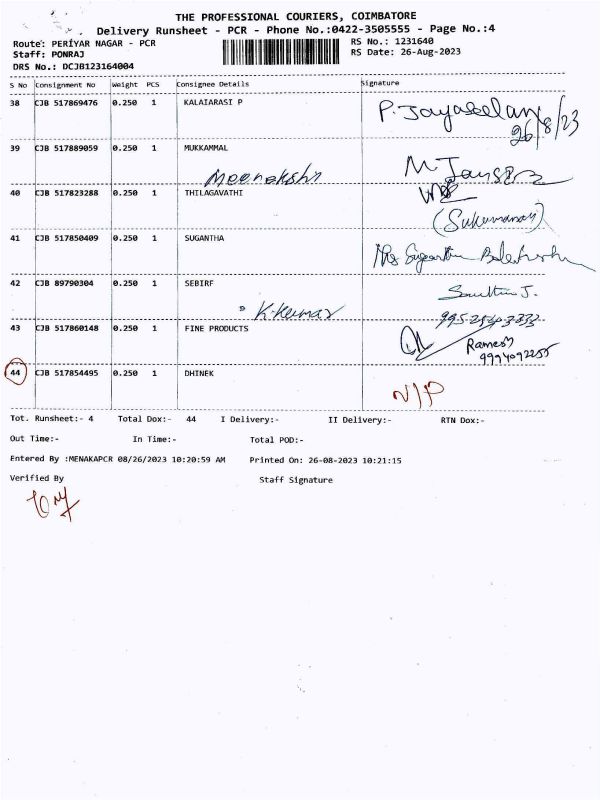 THE PROFESSIONAL COURIERS, COIMBATORE
Delivery Runsheet - PCR - Phone No.:0422-3505555 - Page No.:4
Route: PERIYAR NAGAR - PCR RS No.: 1231640
Staff: PONRAJ RS Date: 26-Aug-2023
DRS No.: DCJB123164004
S No Consignment No Weight PCS Consignee Details Signature
38 CJB 517869476 0.250 1 KALAIARASI P P. Jayaseelan
26/8/23
39 CJB 517889059 0.250 1 MUKKAMMAL
Meenakshi
40 CJB 517823288 0.250 1 THILAGAVATHI
(Sukumaran)
41 CJB 517850409 0.250 1 SUGANTHA
42 CJB 89790304 0.250 1 SEBIRF
K.Kumar
43 CJB 517860148 0.250 1 FINE PRODUCTS
Ramesh
9994092255
44 CJB 517854495 0.250 1 DHINEK
N/P
Tot. Runsheet:- 4 Total Dox:- 44 I Delivery:- II Delivery:- RTN Dox:-
Out Time:- In Time:- Total POD:-
Entered By :MENAKAPCR 08/26/2023 10:20:59 AM Printed On: 26-08-2023 10:21:15
Verified By Staff Signature